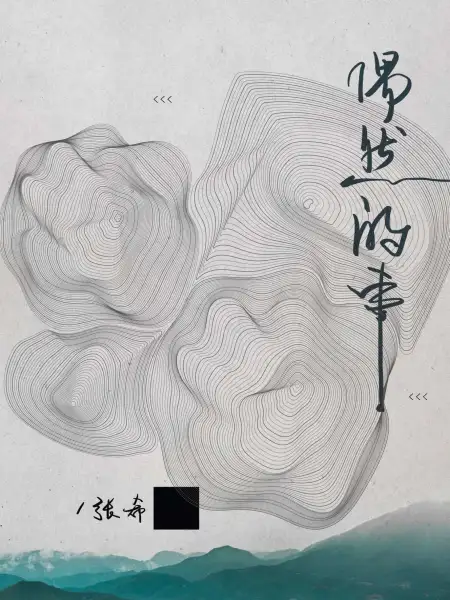 <<<
偶然的事
<<<
/張希